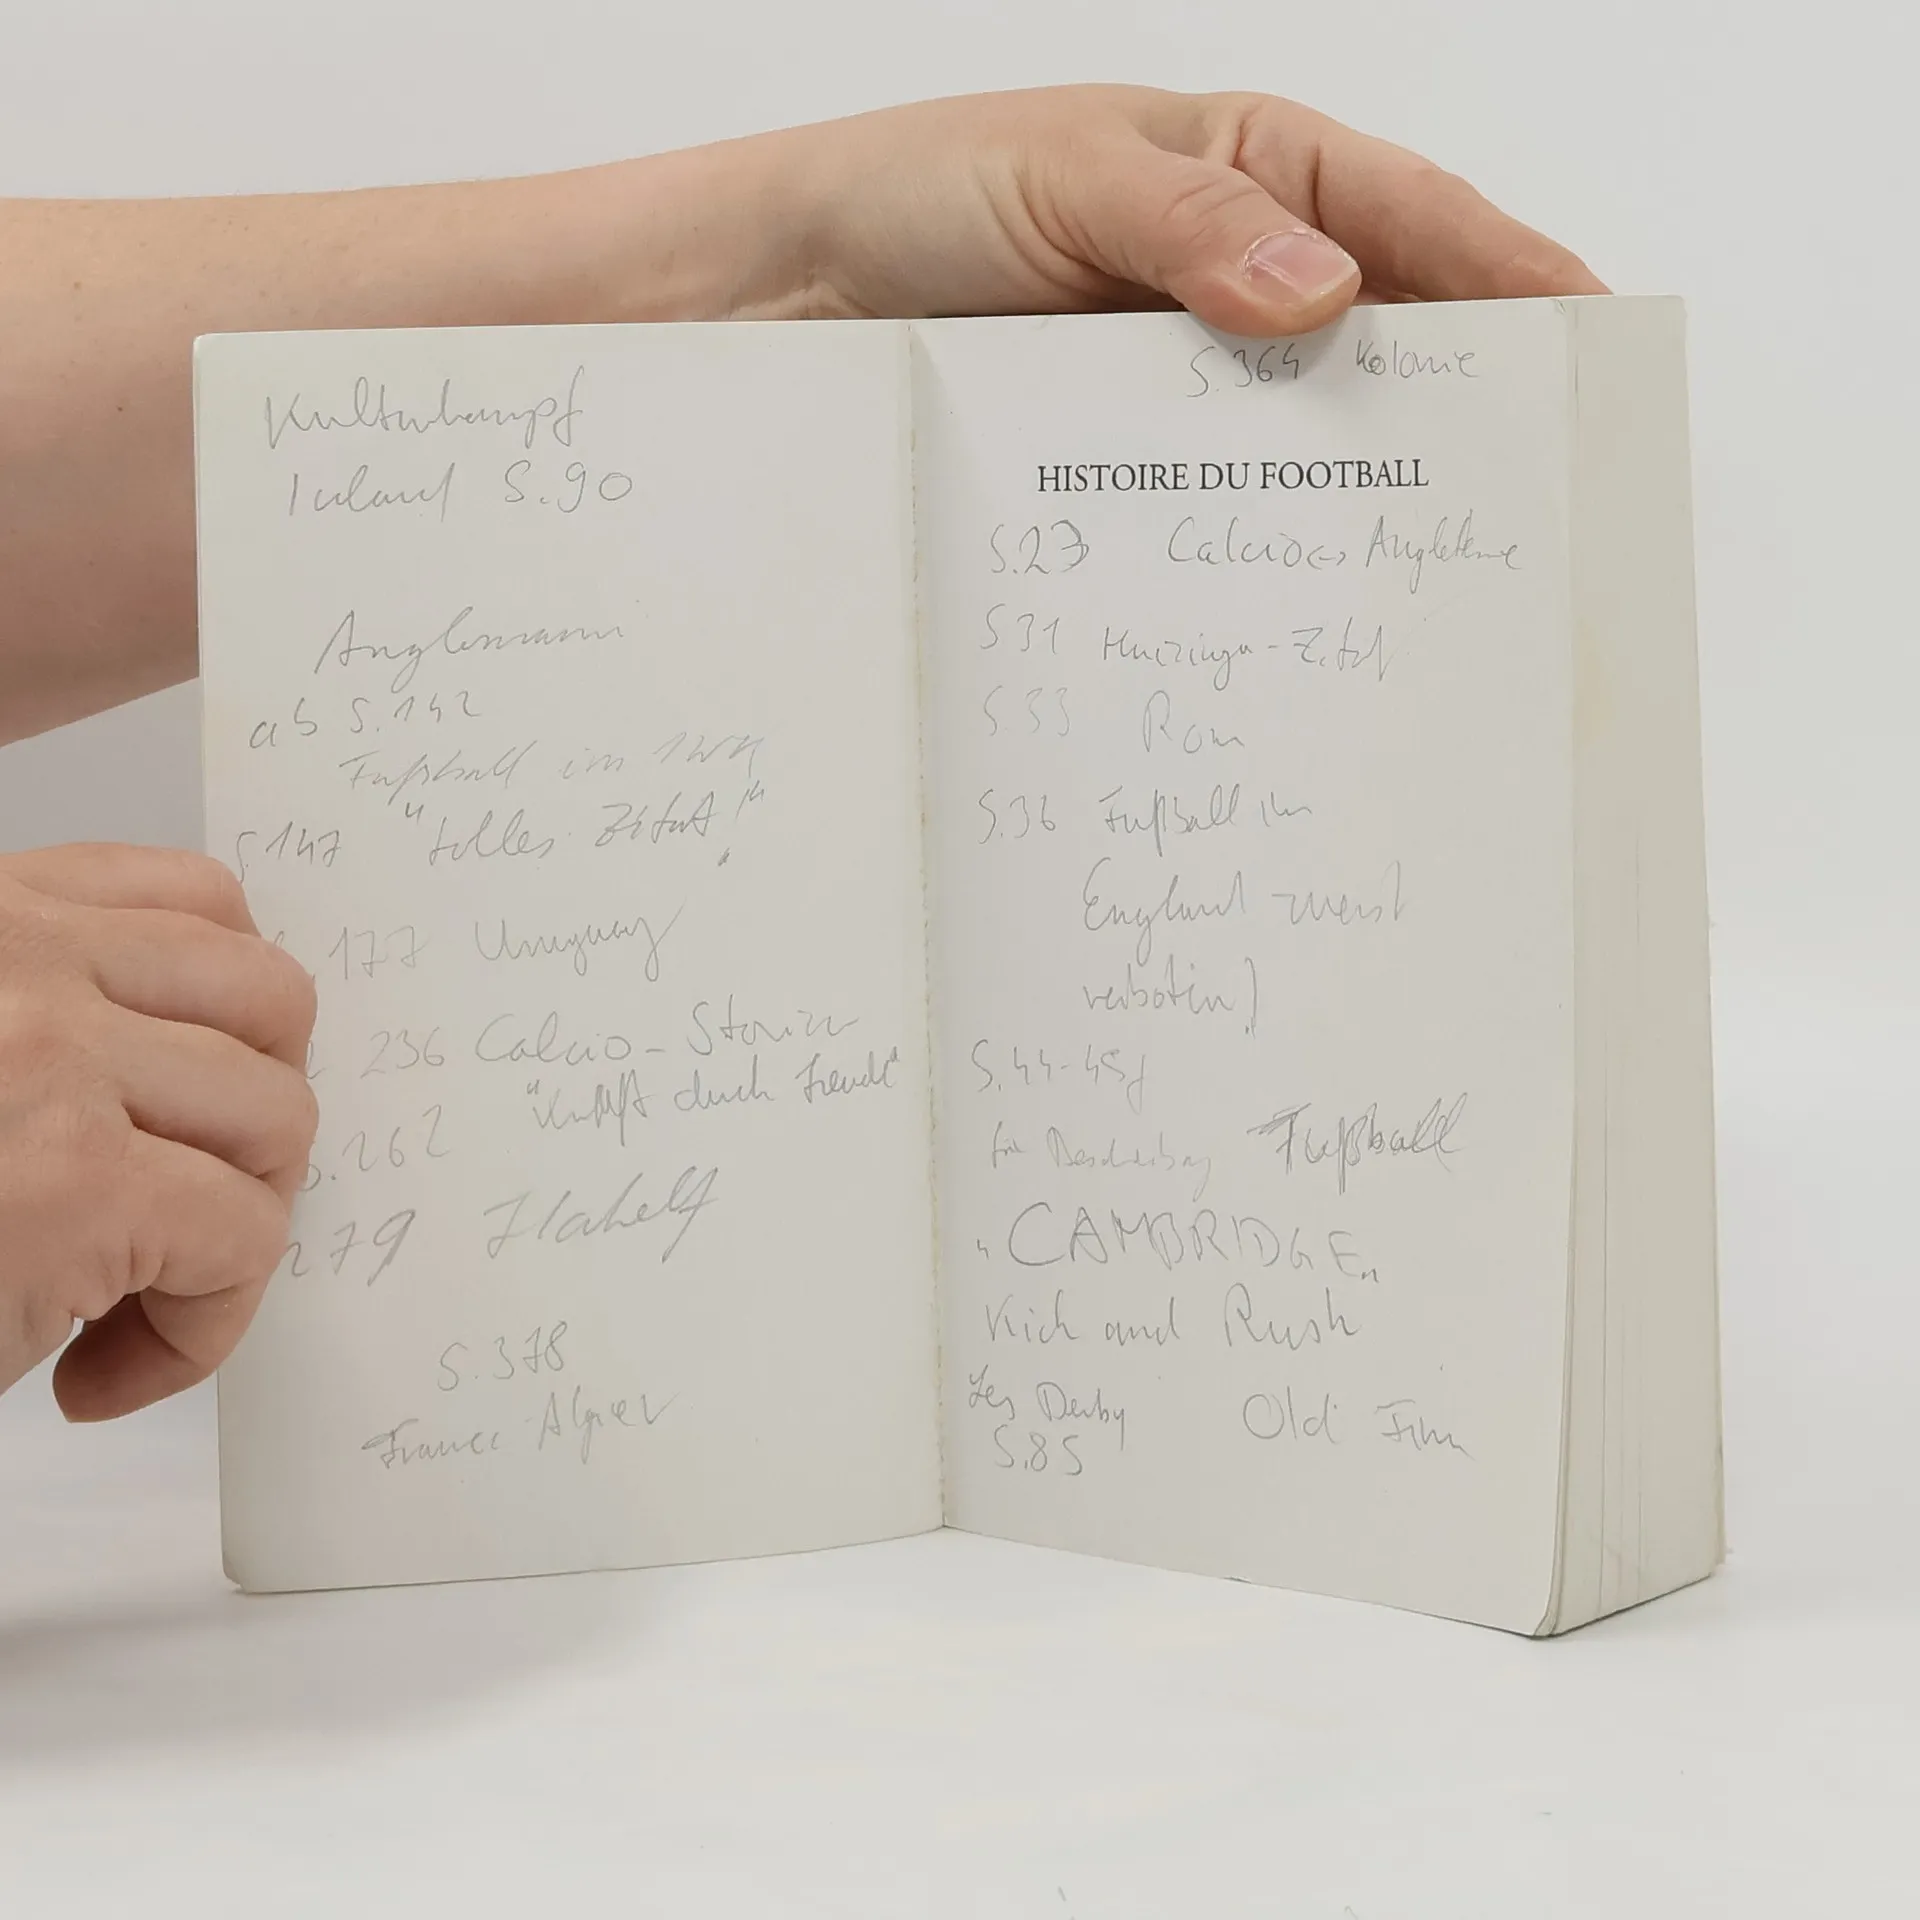 Kulturkampf
Irland S.90
Anglomanie
ab S.142
Fußball im 1WK
S.147 "tolles Zitat!"
177 Uruguay
236 Calcio-Storico
"Kraft durch Freude"
S.262
279 Hakelf
S.378
France Algier
S.364 Kolonie
HISTOIRE DU FOOTBALL
S.23 Calcio <-> Angleterre
S 31 Huizinga-Zitat
S.33 Rom
S.36 Fußball in
England zuerst
verboten!
S.44-45f
für Beschreibung Fußball
"CAMBRIDGE"
Kick and Rush
Les Derby Old Firm
S.85